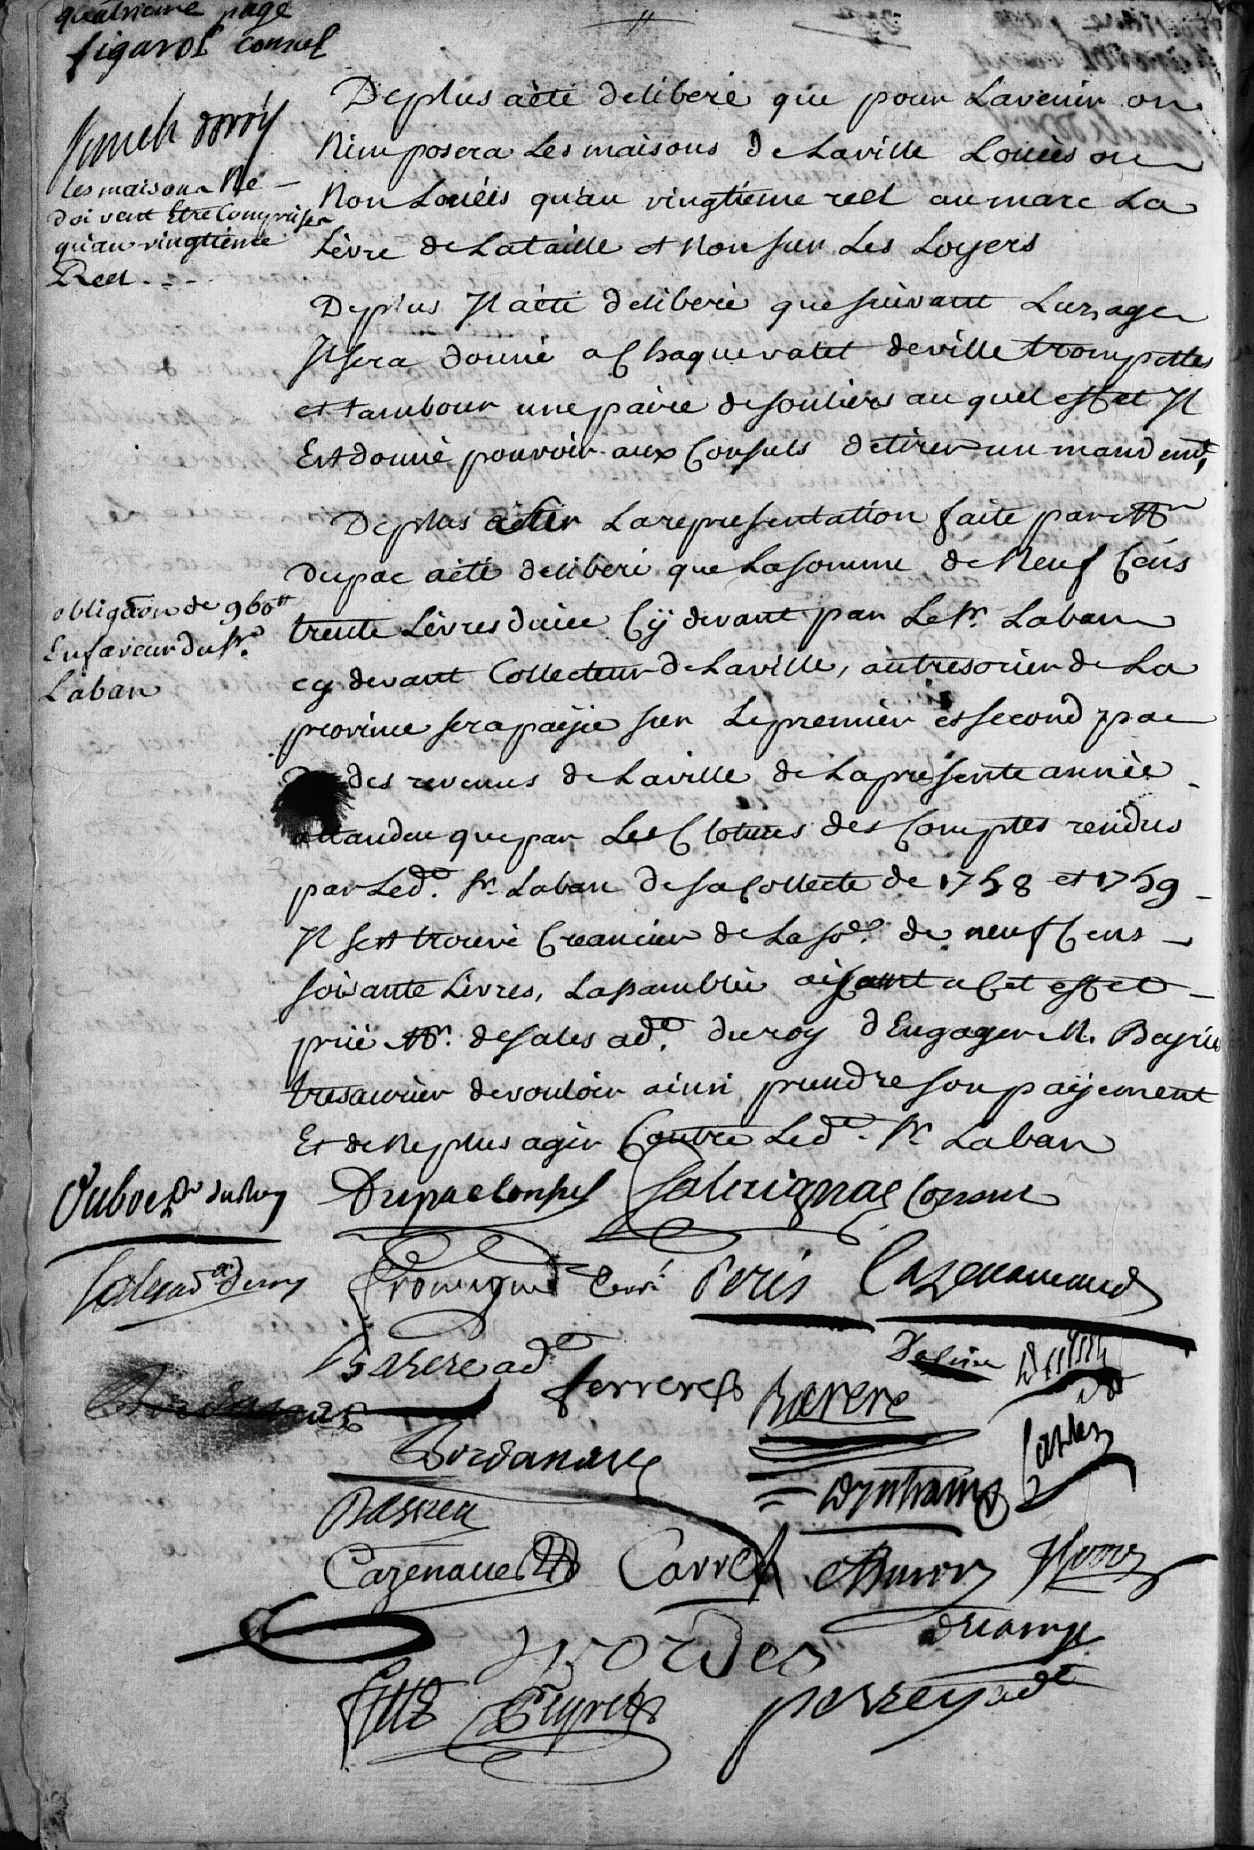 quatrieme page
figarol consul
les maisons Ne
doivent Etre Comprises
qu'au vingtième
Reel
Deplus aèté deliberé que pour Lavenir on
Nimposera Les maisons de Laville Louées ou
Non Louéés qu'au vingtième reel au marc La
Lèvre de Lataille et Non sur Les Loyers
Deplus Il aèté deliberé que suivant Luzage
Il sera donné a Chaque valet de ville trompettes
et tambour une paire de souliers au quel effet Il
Est donné pouvoir aux Consuls de tirer un mandemt,
Deplus Larepresentation faite par Mr
Dupac aèté deliberé que La somme de Neuf Cens
trente Lèvres Cÿ devant par Le Sr. Laban
cy devant Collecteur de Laville, au tresorier de La
province sera païée sur Le premier et second pac
des revenus de Laville de La presente année
attandeu que par Les Clotures des Comptes rendus
par Led. Sr. Laban de sa Collecte de 1758 et 1759
Il sest trouvé Creancier de La so.e de neuf Cens
soixante Livres, Lassamblée aisant a Cet effet
priè Mr. de sales ad. du roy d'Engager M. Beyrie
tresaurier de vouloir ainsi prendre son païjement
Et de Ne plus agir Contre Led. Sr Laban
obligãon de 960tt
En faveur du Sr.
Laban
Duboe pr du Roy
Dupac Consul
Salaignac Consul
Sales ad du roy
Peris
Cazenamand
Barere ad
ferrere
Barere
Bordanave
Cazenave
Carre
Lordes
Fitte
Peyret
perrey adt